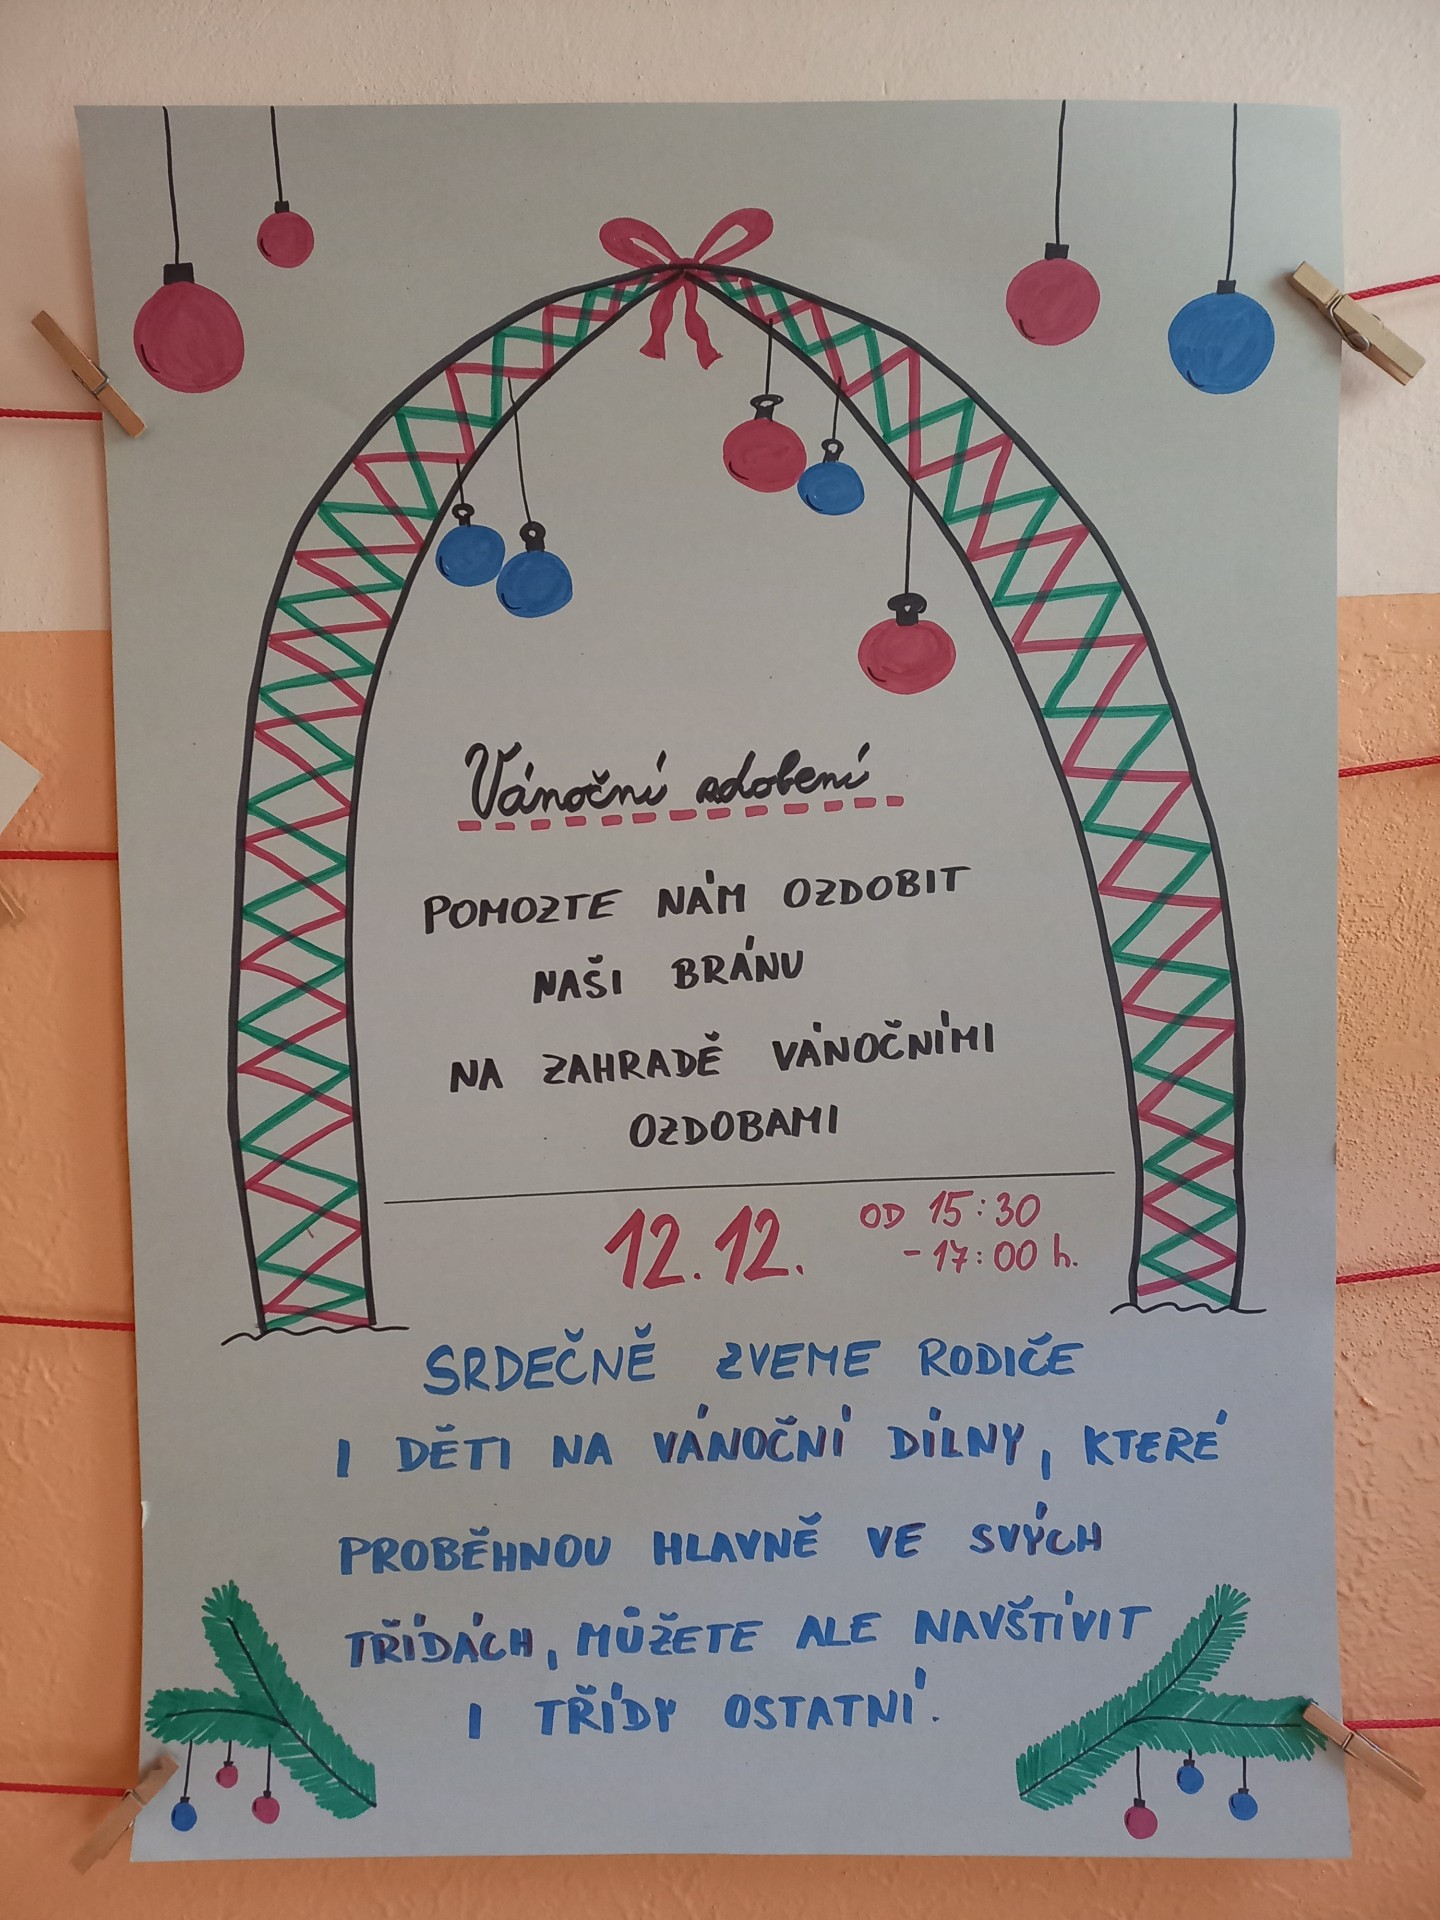 Vánoční zdobení
POMOZTE NÁM OZDOBIT
NAŠI BRÁNU
NA ZAHRADĚ VÁNOČNÍMI
OZDOBAMI
12.12. OD 15:30
- 17:00 h.
SRDEČNĚ ZVEME RODIČE
I DĚTI NA VÁNOČNÍ DÍLNY, KTERÉ
PROBĚHNOU HLAVNĚ VE SVÝCH
TŘÍDÁCH, MŮŽETE ALE NAVŠTÍVIT
I TŘÍDY OSTATNÍ.